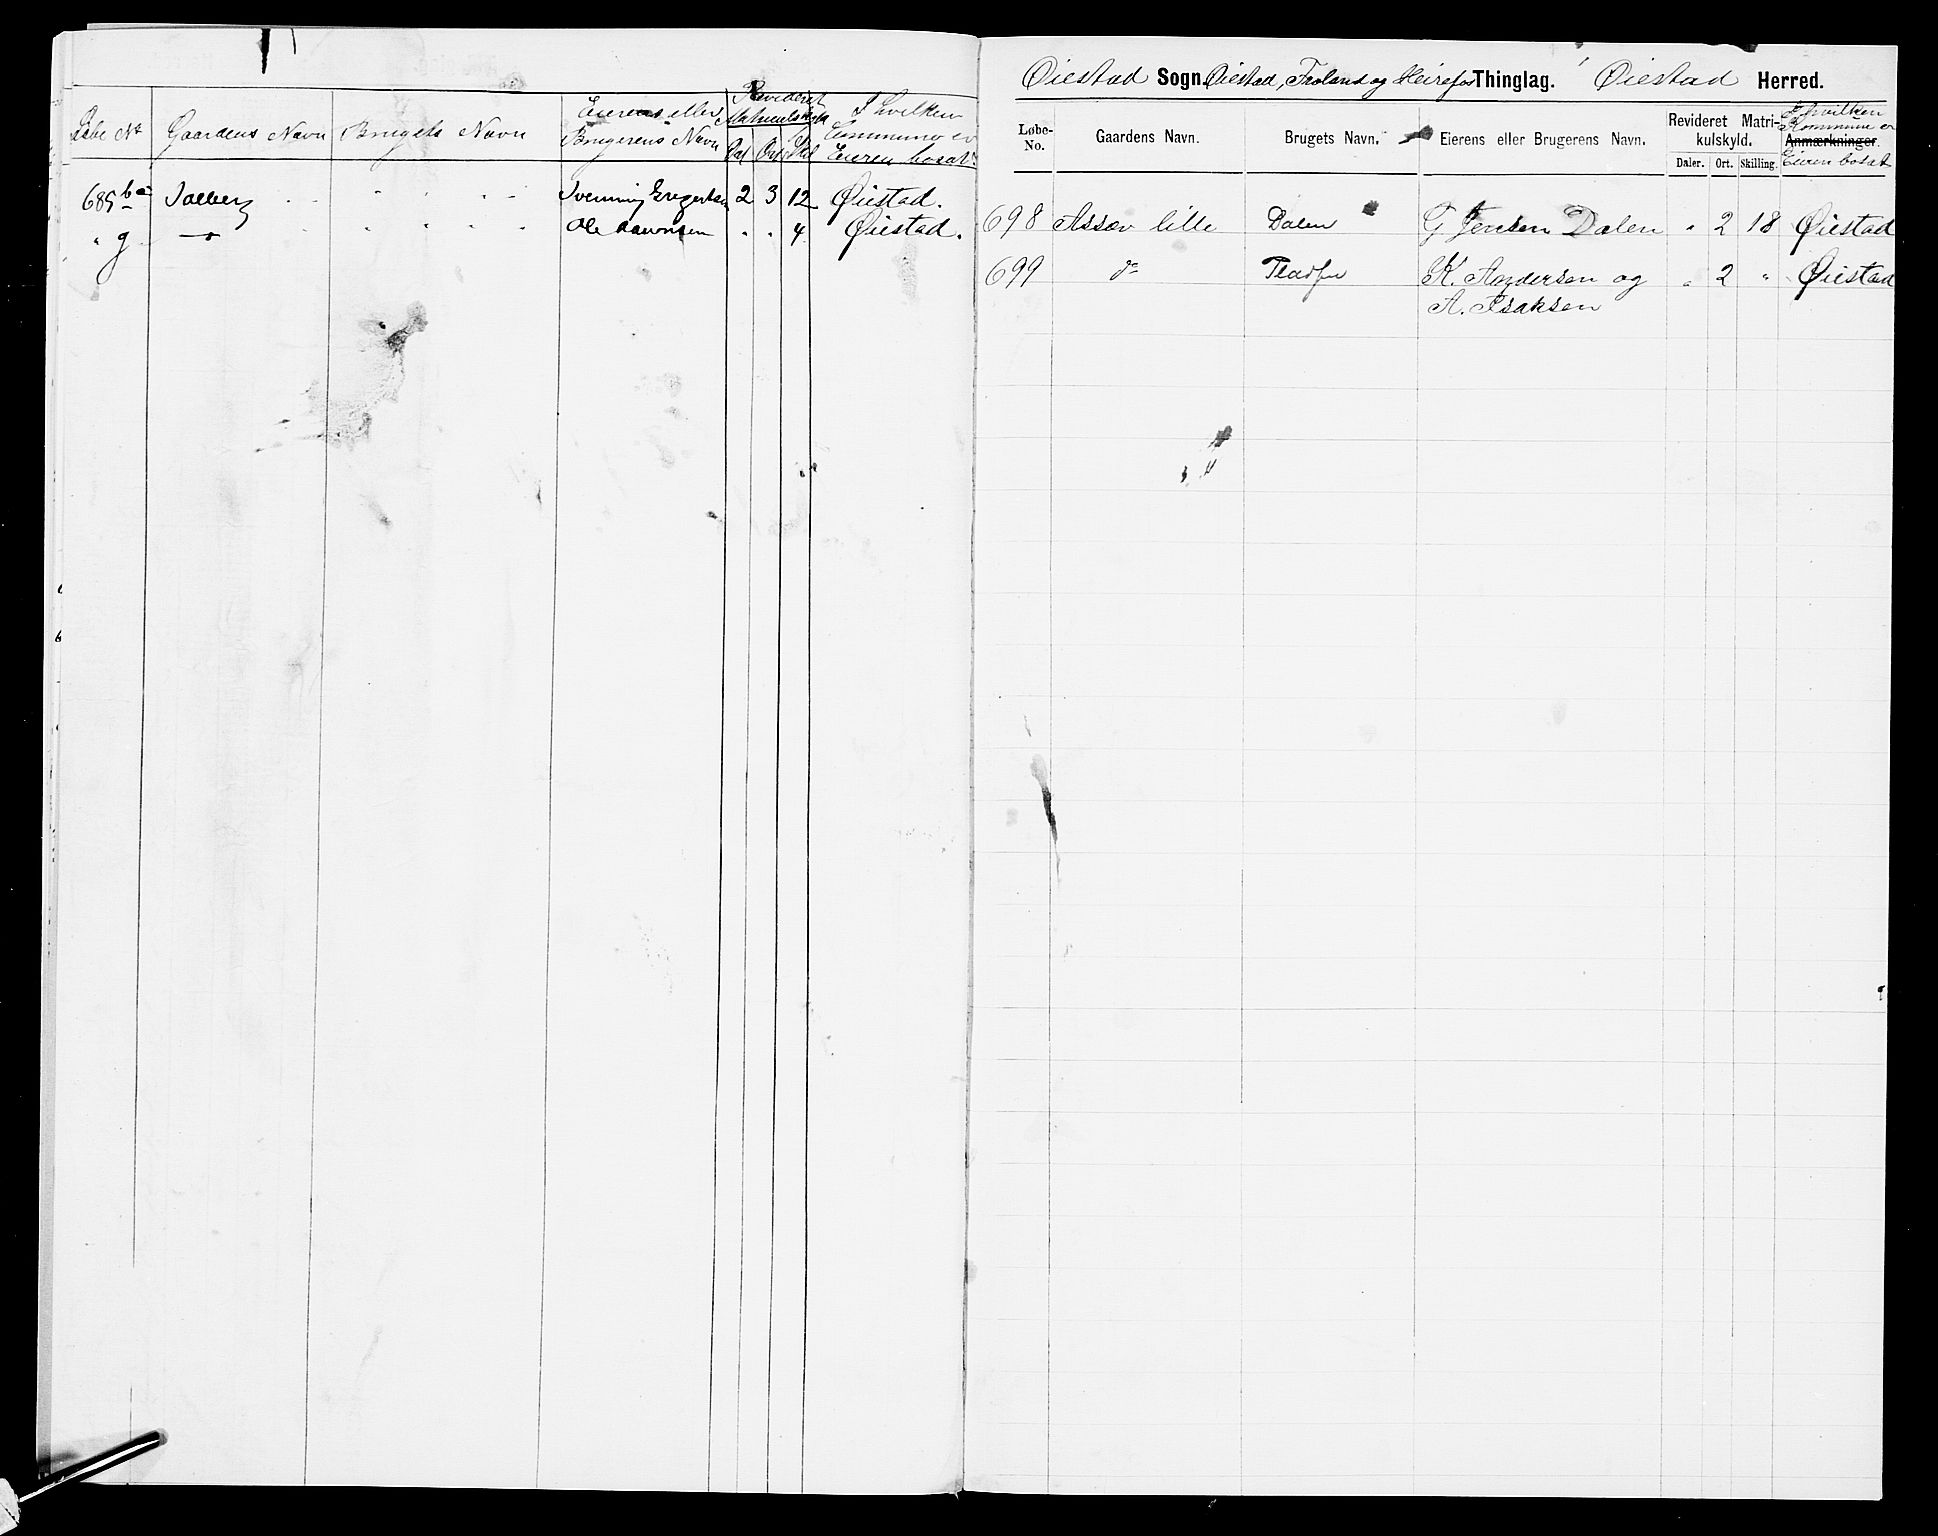 Løbe No Gaardens Navn Brugets Navn Eierens eller Brugerens Navn Revideret Matriculskyld Dal Ort Skil I hvilken Commune er Eieren bosat.
685 ba Solberg " " " " " " Svenning Gregersen 2 3 12 Øiestad.
" g — " " " " " " Ole Aanonsen " " 4 Øiestad.
Øiestad Sogn. Øiestad, Froland og Heirefos Thinglag. Øiestad Herred.
Løbe-No. Gaardens Navn. Brugets Navn. Eierens eller Brugerens Navn. Revideret Matrikulskyld. Daler. Ort. Skilling. Anmærkninger. I hvilken Kommune er Eieren bosat
698 Assev lille Dalen G. Jensen Dalen " 2 18 Øiestad
699 do K. Andersen og " 2 " Øiestad
A. Isaksen